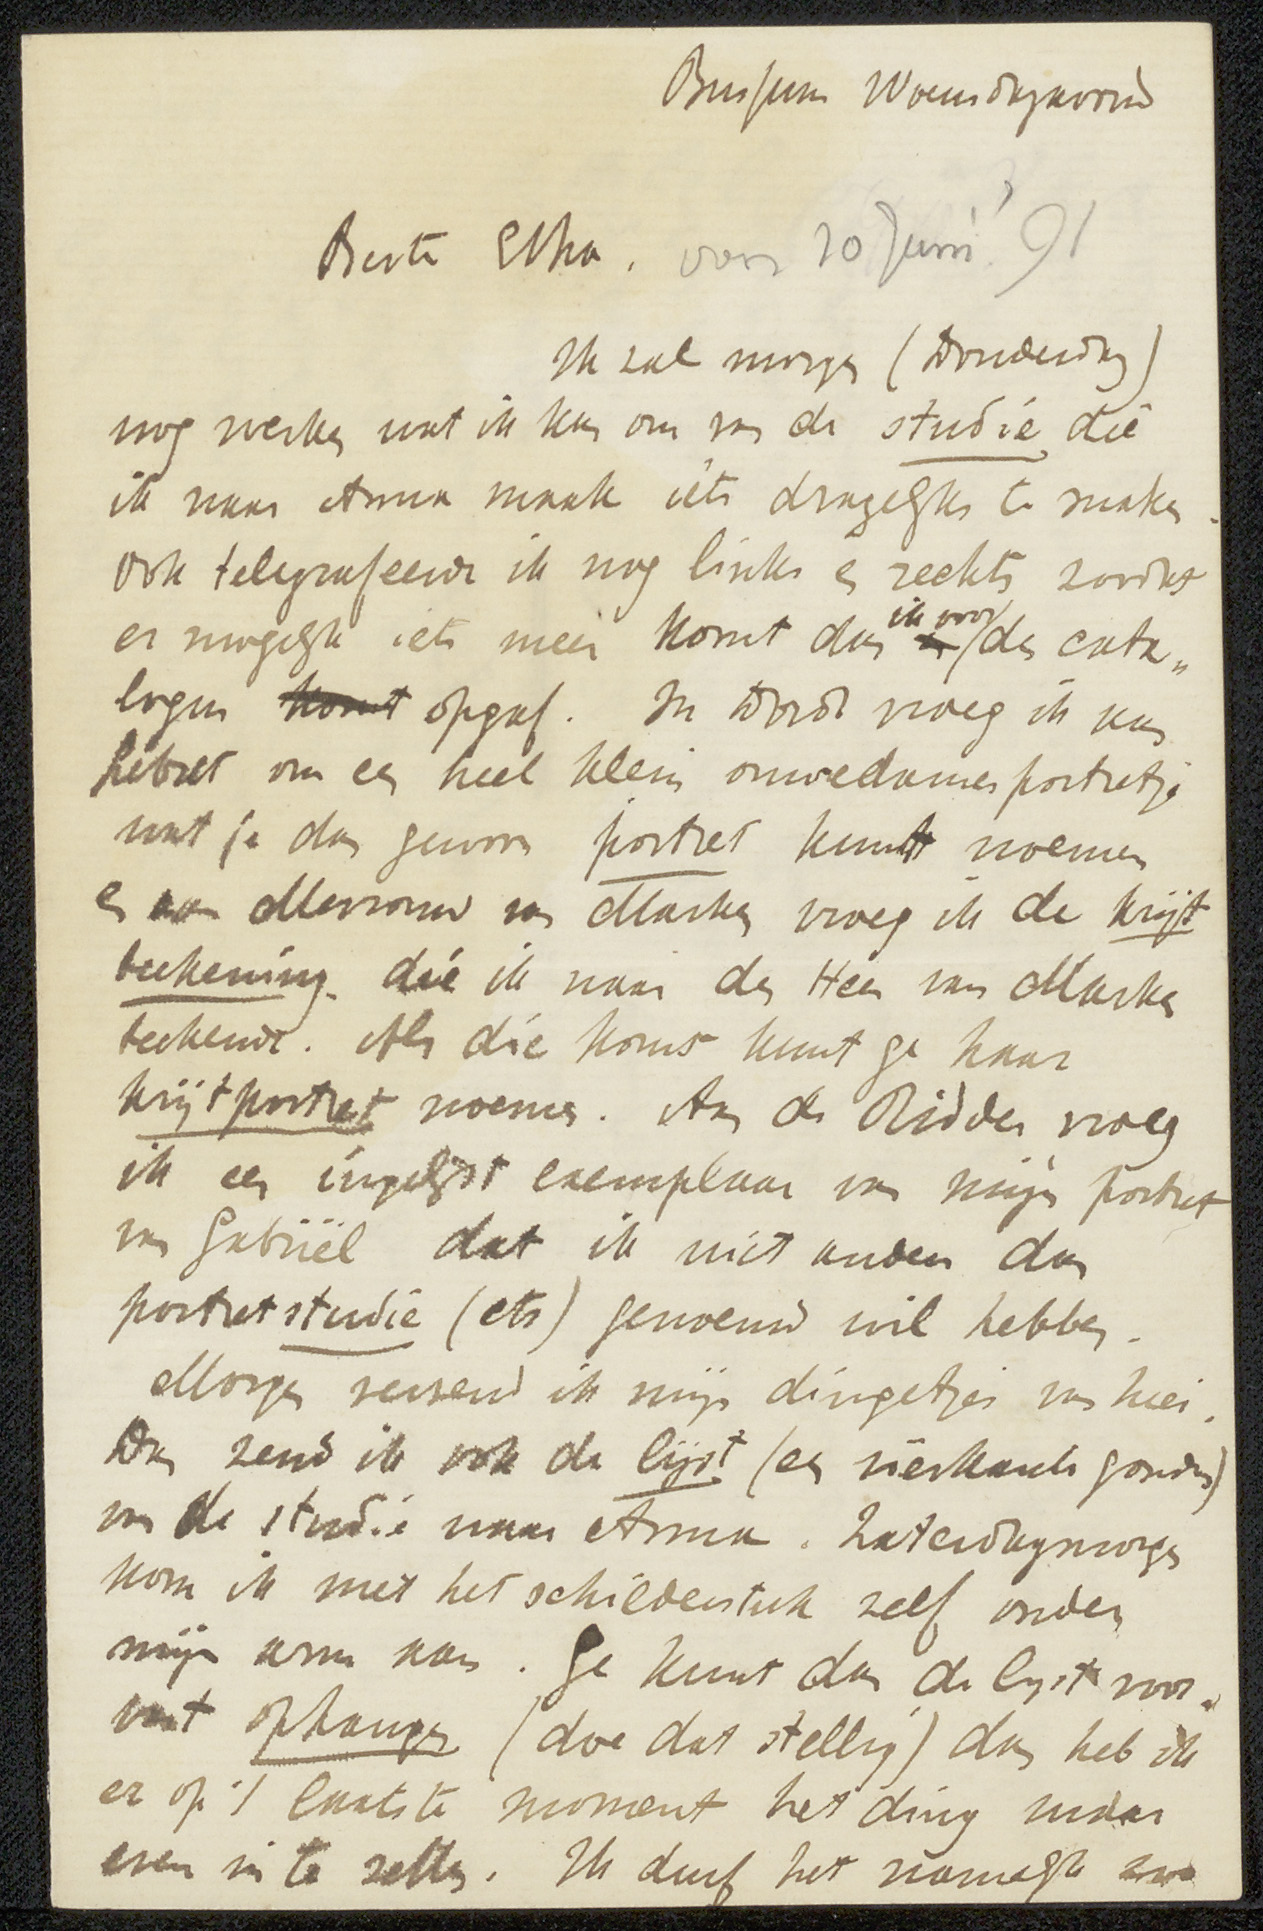 Bussum Woensdagavond
Beste Etha. voor 20 Juni '91
Ik zal morgen (Donderdag)
nog werken wat ik kan om van de studie die
ik naar Anna maak iets dragelijks te maken.
Ook telegrafeerde ik nog links en rechts zoodat
er mogelijk iets meer komt dan ik voor den cata„
logus komt opgaf. In Dordt vroeg ik aan
hebzet om een heel klein ouwedamesportretje
wat je dan gewoon portret kunt noemen
en aan Mevrouw van Marken vroeg ik de krijt
teekening die ik naar den Heer van Marken
teekende. Als die komt kunt ge haar
krijtportret noemen. Aan de Ridder vroeg
ik een ingelijst exemplaar van mijn portret
van Gabriël dat ik niet anders dan
portretstudie (ets) genoemd wil hebben.
Morgen verzend ik mijn dingetjes van hier.
Dan zend ik ook de lijst (een vierkante gouden)
van de studie naar Anna. Zaterdagmorgen
kom ik met het schilderstuk zelf onder
mijn arm aan. Ge kunt dan de lijst voor„
uit ophangen (doe dat stellig) dan heb ik
er op 't laatste moment het ding maar
even in te zetten. Ik durf het namelijk